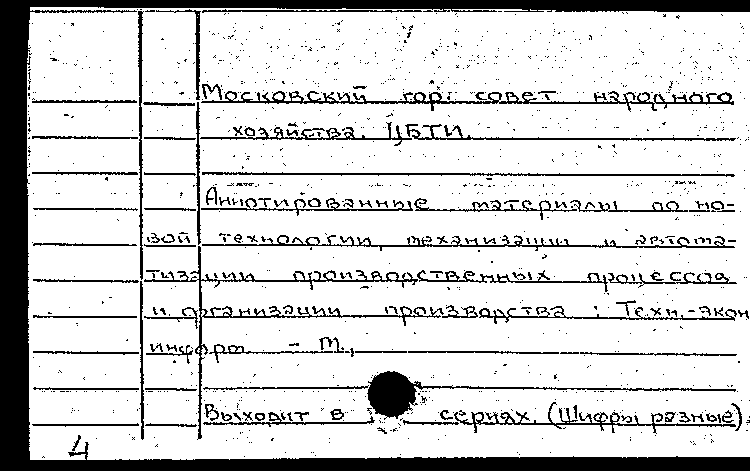 Московский гор. совет народного
хозяйства. ЦБТИ.
Аннотированные материалы по но-
вой технологии, механизации и автома-
тизации производственных процессов
и организации производства : Техн.-экон
информ. - М.,
Выходит в сериях. (Шифры разные).
4